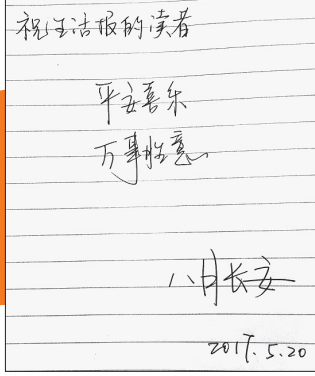 祝生活报的读者
平安喜乐
万事胜意
八月长安
2017.5.20